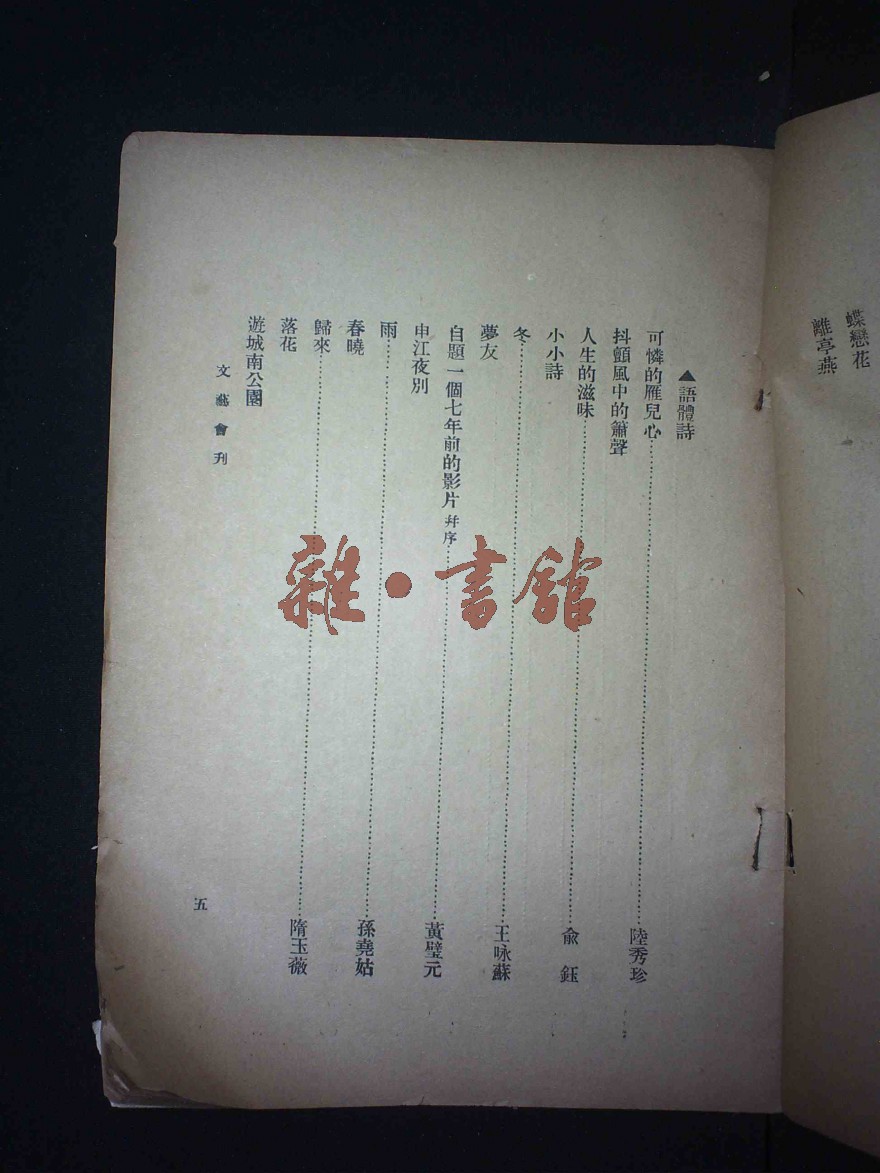 蝶戀花
離亭燕
▲語體詩
可憐的雁兒心……陸秀珍
抖顫風中的簫聲
人生的滋味……俞鈺
小小詩
冬……王咏蘇
夢友
自題一個七年前的影片 幷序……黃璧元
申江夜別
雨……孫堯姑
春曉
歸來……隋玉薇
落花
遊城南公園
文藝會刊
五
雜·書館